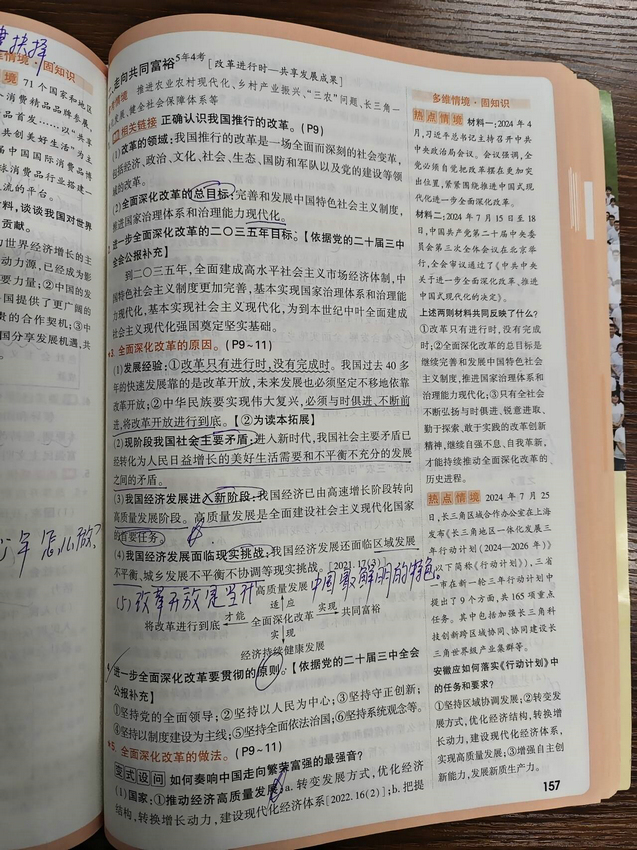 抉择
维情境·固知识
境 71个国家和地区
消费精品品牌参展,
品首发……以"共享
共创美好生活"为主
届中国国际消费品博
球消费品行业搭建一
流的平台。
料,谈谈我国对世界
贡献。
为世界经济增长的主
动力源,已经成为影
要力量;②中国的发
各国提供了更广阔的
贵的合作契机;③中
国分享发展机遇,共
少年怎么做?
走向共同富裕5年4考 [改革进行时—共享发展成果]
情境 推进农业农村现代化、乡村产业振兴、"三农"问题、长三角一
发展、健全社会保障体系等
相关链接 正确认识我国推行的改革。(P9)
(1)改革的领域:我国推行的改革是一场全面而深刻的社会变革,
包括经济、政治、文化、社会、生态、国防和军队以及党的建设等领
域的改革。
(2)全面深化改革的总目标:完善和发展中国特色社会主义制度,
推进国家治理体系和治理能力现代化。
进一步全面深化改革的二〇三五年目标。【依据党的二十届三中
全会公报补充】
到二〇三五年,全面建成高水平社会主义市场经济体制,中
国特色社会主义制度更加完善,基本实现国家治理体系和治理能
力现代化,基本实现社会主义现代化,为到本世纪中叶全面建成
社会主义现代化强国奠定坚实基础。
*3. 全面深化改革的原因。(P9~11)
(1)发展经验:①改革只有进行时,没有完成时。我国过去40多
年的快速发展靠的是改革开放,未来发展也必须坚定不移地依靠
改革开放;②中华民族要实现伟大复兴,必须与时俱进、不断前
进,将改革开放进行到底。【②为读本拓展】
(2)现阶段我国社会主要矛盾:进入新时代,我国社会主要矛盾已
经转化为人民日益增长的美好生活需要和不平衡不充分的发展
之间的矛盾。
(3)我国经济发展进入新阶段:我国经济已由高速增长阶段转向
高质量发展阶段。高质量发展是全面建设社会主义现代化国家
的首要任务。
(4)我国经济发展面临现实挑战:我国经济发展还面临区域发展
不平衡、城乡发展不平衡不协调等现实挑战。[2021.17(3)]
(5)改革开放是当代中国最鲜明的特色。
高质量发展
适应
将改革进行到底 才能 全面深化改革 实现 共同富裕
实现
经济持续健康发展
进一步全面深化改革要贯彻的原则。【依据党的二十届三中全会
公报补充】
①坚持党的全面领导;②坚持以人民为中心;③坚持守正创新;
④坚持以制度建设为主线;⑤坚持全面依法治国;⑥坚持系统观念等。
*5. 全面深化改革的做法。(P9~11)
变式设问 如何奏响中国走向繁荣富强的最强音?
(1)国家:①推动经济高质量发展:a.转变发展方式,优化经济
结构,转换增长动力,建设现代化经济体系[2022.16(2)];b.把提
多维情境·固知识
热点情境 材料一:2024年4
月,习近平总书记主持召开中共
中央政治局会议。会议强调,全
党必须自觉把改革摆在更加突
出位置,紧紧围绕推进中国式现
代化进一步全面深化改革。
材料二:2024年7月15日至18
日,中国共产党第二十届中央委
员会第三次全体会议在北京举
行,全会审议通过了《中共中央
关于进一步全面深化改革、推进
中国式现代化的决定》。
上述两则材料共同反映了什么?
①改革只有进行时,没有完成
时;②全面深化改革的总目标是
继续完善和发展中国特色社会
主义制度,推进国家治理体系和
治理能力现代化;③只有全社会
不断弘扬与时俱进、锐意进取、
勤于探索、敢于实践的改革创新
精神,继续自强不息、自我革新,
才能持续推动全面深化改革的
历史进程。
热点情境 2024年7月25
日,长三角区域合作办公室在上海
发布《长三角地区一体化发展三
年行动计划(2024—2026年)》
(以下简称《行动计划》),三省
一市在新一轮三年行动计划中
提出了9个方面,共165项重点
任务。其中包括加强长三角科
技创新跨区域协同、协同建设长
三角世界级产业集群等。
安徽应如何落实《行动计划》中
的任务和要求?
①坚持区域协调发展;②转变发
展方式,优化经济结构,转换增
长动力,建设现代化经济体系,
实现高质量发展;③增强自主创
新能力,发展新质生产力。
157